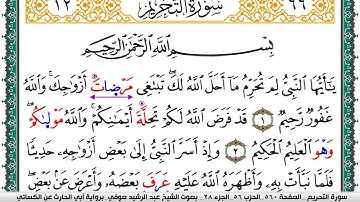 ١٢ سُورَةُ التَّحْرِيمِ ٦٦
بِسْمِ اللَّهِ الرَّحْمَٰنِ الرَّحِيمِ
يَٰٓأَيُّهَا النَّبِيُّ لِمَ تُحَرِّمُ مَآ أَحَلَّ اللَّهُ لَكَۖ تَبْتَغِي مَرْضَاتَ أَزْوَٰجِكَۚ وَاللَّهُ
غَفُورٌ رَّحِيمٌ ١ قَدْ فَرَضَ اللَّهُ لَكُمْ تَحِلَّةَ أَيْمَٰنِكُمْۚ وَاللَّهُ مَوْلَىٰكُمْۖ
وَهْوَ الْعَلِيمُ الْحَكِيمُ ٢ وَإِذْ أَسَرَّ النَّبِيُّ إِلَىٰ بَعْضِ أَزْوَٰجِهِۦ حَدِيثًا
فَلَمَّا نَبَّأَتْ بِهِۦ وَأَظْهَرَهُ اللَّهُ عَلَيْهِ عَرَفَ بَعْضَهُۥ وَأَعْرَضَ عَنۢ بَعْضٍۖ
سورة التحريم _ الصفحة ٥٦٠ _ الحزب ٥٦ _ الجزء ٢٨ _ بصوت الشيخ عبد الرشيد صوفي _ برواية أبي الحارث عن الكسائي